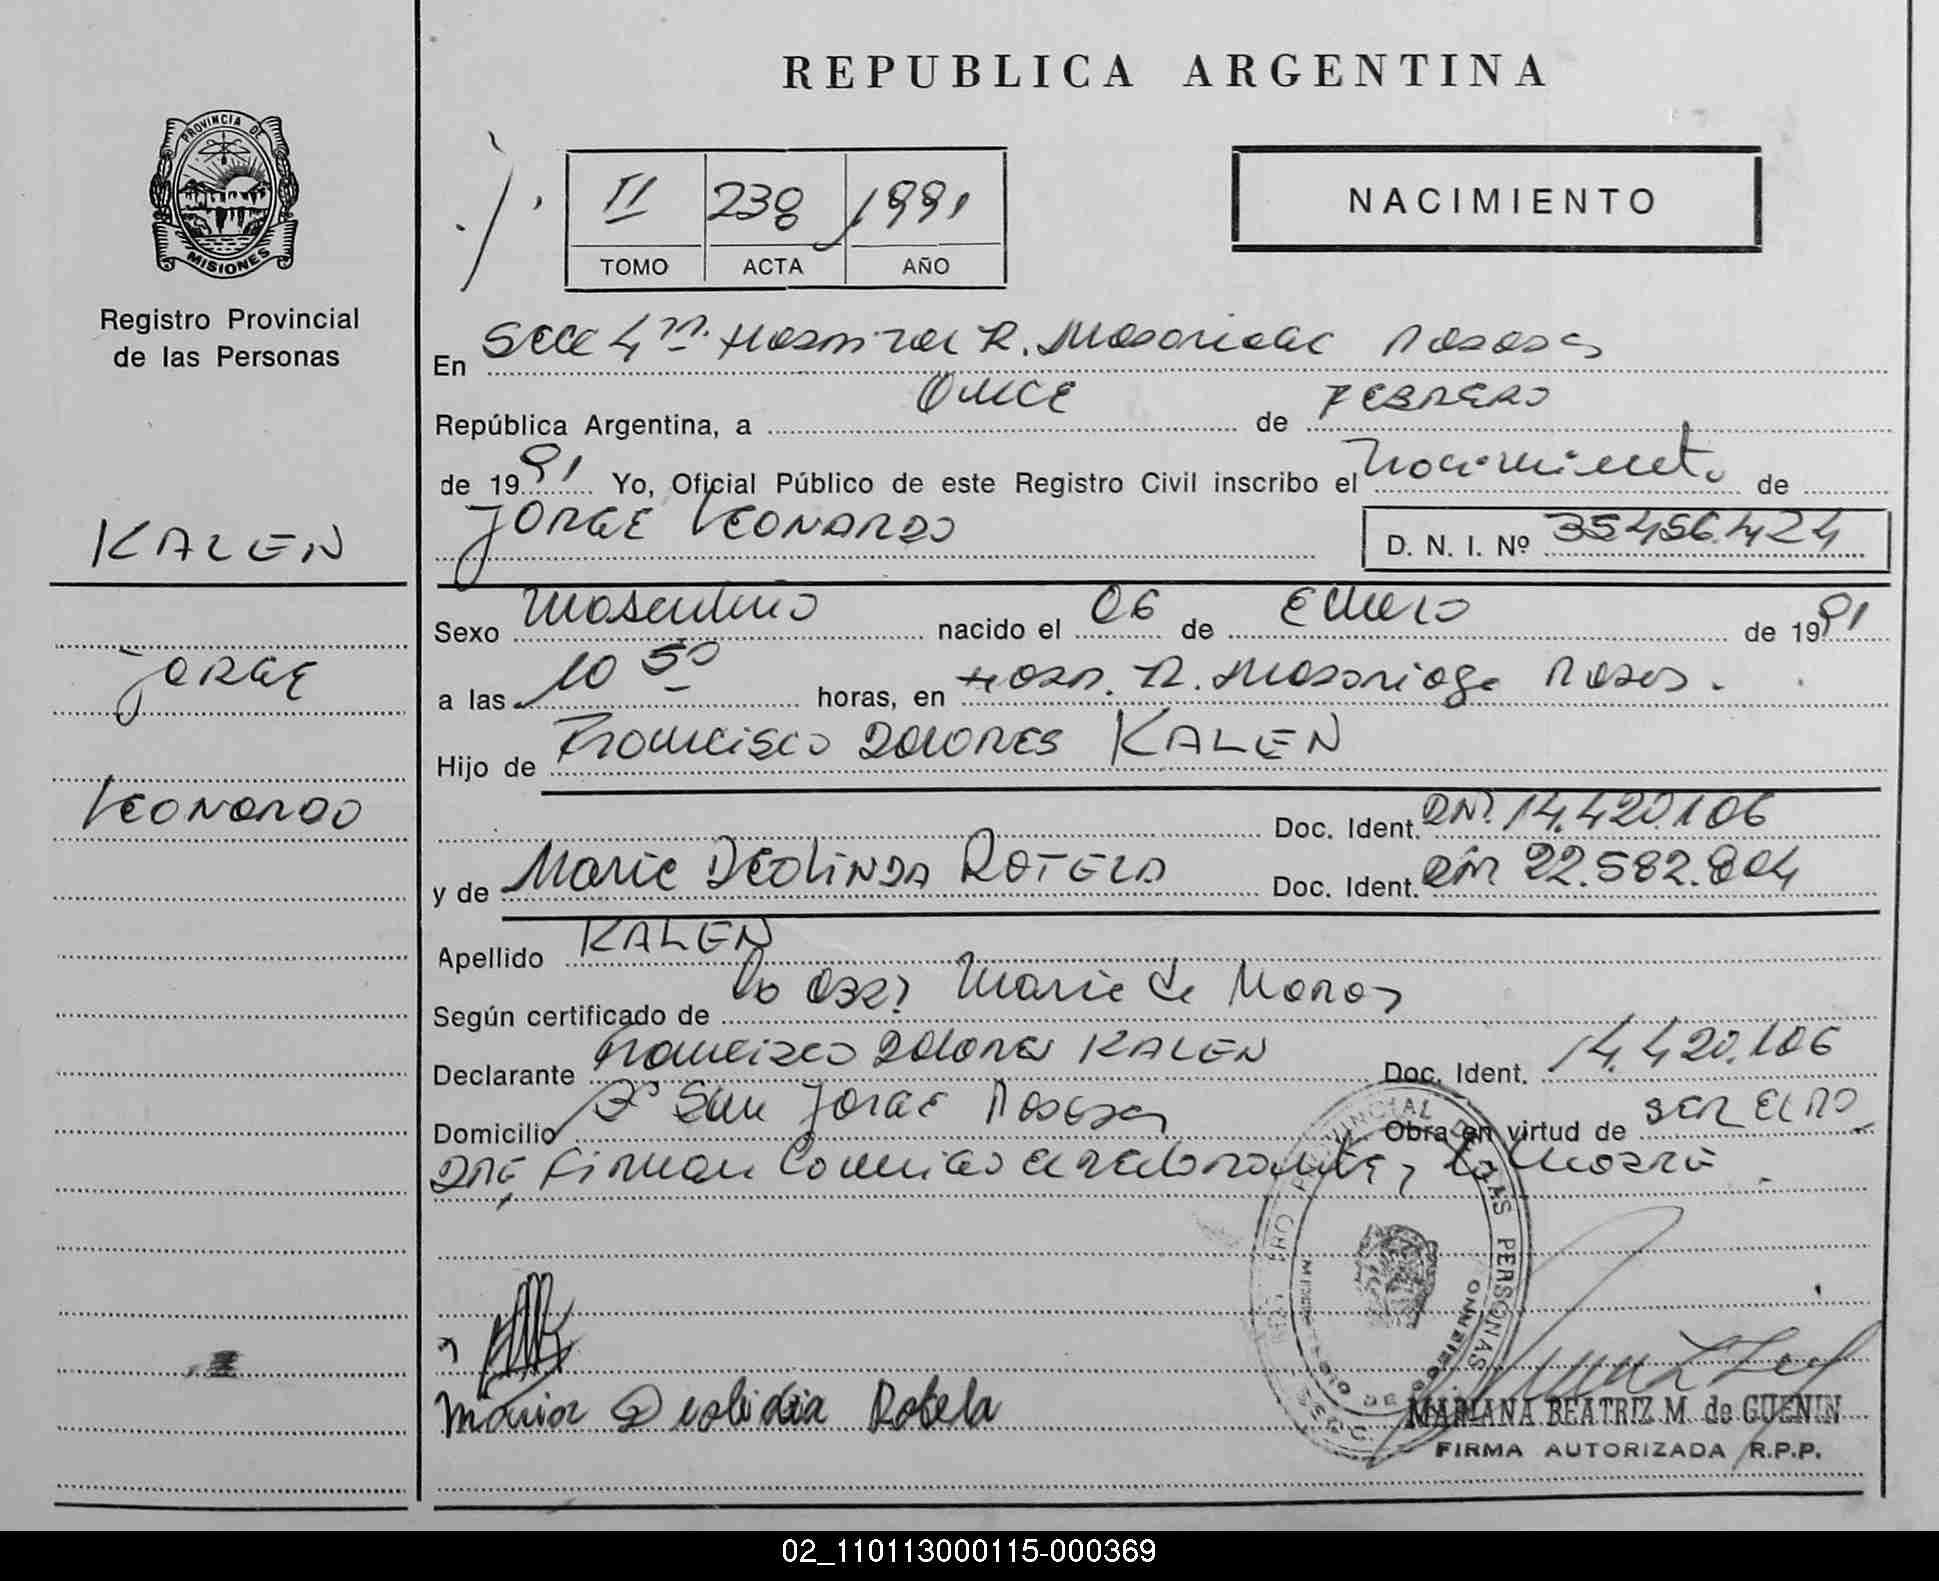 REPUBLICA ARGENTINA
PROVINCIA DE
MISIONES
Registro Provincial
de las Personas
II 238 1991
TOMO ACTA AÑO
NACIMIENTO
En Secc 4ta. Hospital R. Madariaga Posadas
República Argentina, a ONCE de FEBRERO
de 1991 Yo, Oficial Público de este Registro Civil inscribo el Nacimiento de
JORGE LEONARDO D. N. I. Nº 35.456.424
KALEN
JORGE
LEONARDO
Sexo Masculino nacido el 06 de Enero de 1991
a las 10 50 horas, en Hosp. R. Madariaga Posadas.
Hijo de Francisco Dolores KALEN
Doc. Ident. DNI. 14.420.106
y de Maria DEOLINDA ROTELA Doc. Ident. DNI 22.582.804
Apellido KALEN
Según certificado de la Obst Maria de
Declarante Francisco Dolores KALEN Doc. Ident. 14.420.106
Domicilio Bº San Jorge Posadas Obra en virtud de SER EL PA
DRE, Firman Conmigo el declarante y la Madre
Maria Deolinda Rotela
REGISTRO PROVINCIAL DE LAS PERSONAS
MINISTERIO DE GOBIERNO
MARIANA BEATRIZ M. de GUENIN
FIRMA AUTORIZADA R.P.P.
02_110113000115-000369